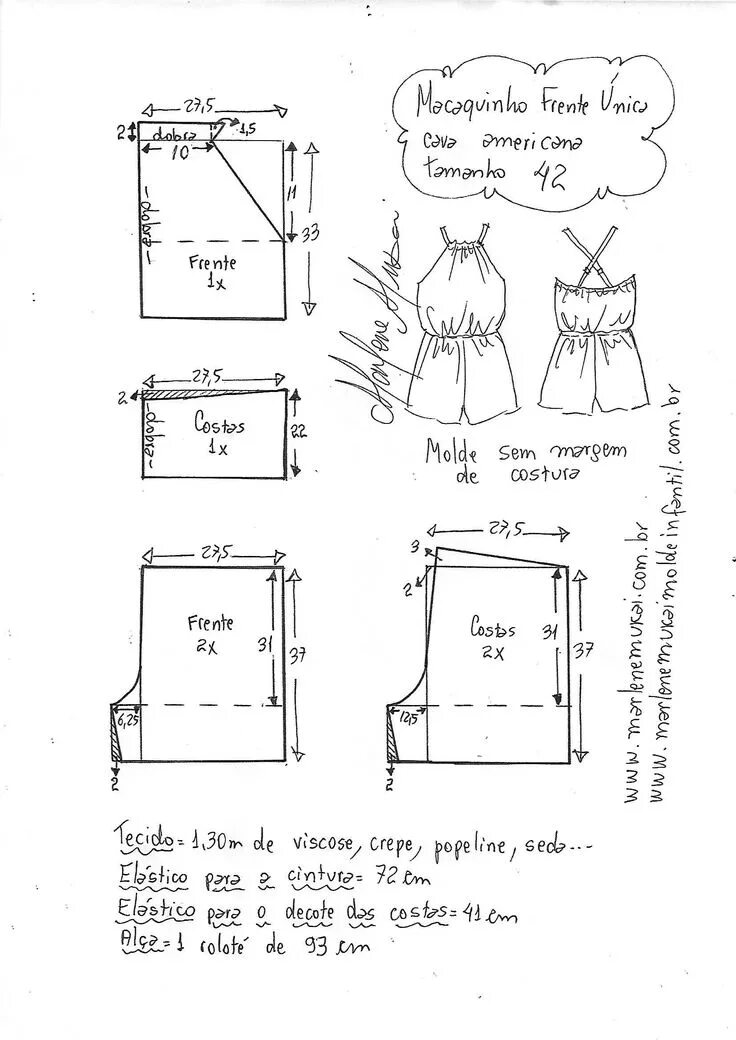 Macaquinho Frente Única
cava americana
tamanho 42
27,5
2
dobra
1,5
10
11
33
-dobra-
Frente
1x
Marlene Mukai
27,5
2
-dobra-
Costas
1x
22
Molde sem margem
de costura
27,5
Frente
2x
31
37
6,25
2
27,5
3
2
Costas
2x
31
37
12,5
2
www.marlenemukai.com.br
www.marlenemukaimoldeinfantil.com.br
Tecido = 1,30m de viscose, crepe, popeline, seda...
Elástico para a cintura = 72 cm
Elástico para o decote das costas = 41 cm
Alça = 1 roloté de 93 cm